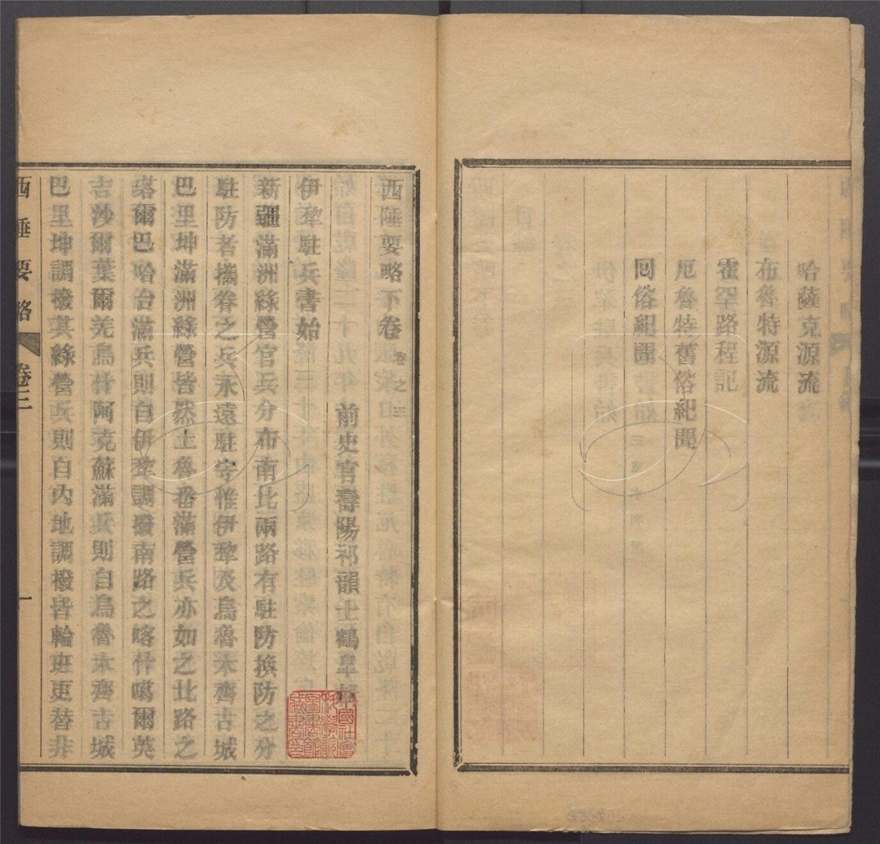 哈薩克源流
布魯特源流
霍罕路程記
厄魯特舊俗紀聞
回俗紀聞
西陲要略下卷 卷之三
前史官壽陽祁韻士鶴皐
伊犂駐兵書始
新疆滿洲綠營官兵分布南北兩路有駐防換防之分
駐防者攜眷之兵永遠駐守惟伊犂及烏魯木齊古城
巴里坤滿洲綠營皆然土魯番滿營兵亦如之北路之
塔爾巴哈台滿兵則自伊犂調撥南路之喀什噶爾英
吉沙爾葉爾羌烏什阿克蘇滿兵則自烏魯木齊古城
巴里坤調撥其綠營兵則自內地調撥皆輪班更替非
西陲要略 卷三 一